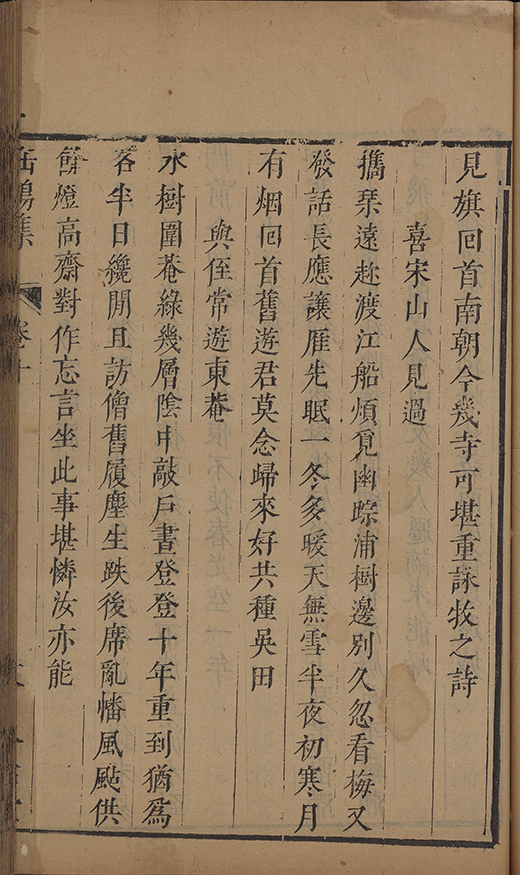 見旗回首南朝今幾寺可堪重詠牧之詩
喜宋山人見過
攜琹遠趂渡江船煩覓幽踪浦樹邊別久忽看梅又
發話長應讓雁先眠一冬多暖天無雪半夜初寒月
有烟回首舊遊君莫念歸來好共種吳田
與侄常遊東菴
水樹圍菴綠幾層陰中敲戶晝登登十年重到猶爲
客半日纔閒且訪僧舊履塵生趺後席亂幡風颭供
餘燈高齋對作忘言坐此事堪憐汝亦能
缶鳴集
卷十